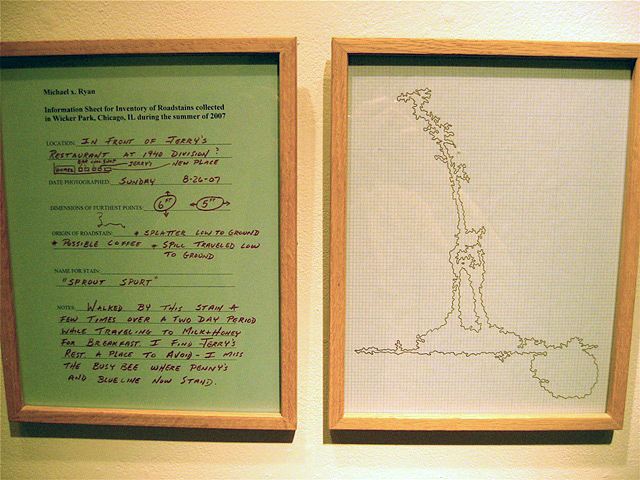 Michael x. Ryan
Information Sheet for Inventory of Roadstains collected
in Wicker Park, Chicago, IL during the summer of 2007
LOCATION: IN FRONT OF JERRY'S
RESTAURANT AT 1940 DIVISION?
JERRY'S NEW PLACE
DATE PHOTOGRAPHED: SUNDAY 8-26-07
DIMENSIONS OF FURTHEST POINTS: 6FT 5FT
ORIGIN OF ROADSTAIN: * SPLATTER LOW TO GROUND
* POSSIBLE COFFEE * SPILL TRAVELED LOW
TO GROUND
NAME FOR STAIN:
"SPROUT SPURT"
NOTES: WALKED BY THIS STAIN A
FEW TIMES OVER A TWO DAY PERIOD
WHILE TRAVELING TO MILK & HONEY
FOR BREAKFAST. I FIND JERRY'S
REST. A PLACE TO AVOID - I MISS
THE BUSY BEE WHERE PENNY'S
AND BLUELINE NOW STAND.